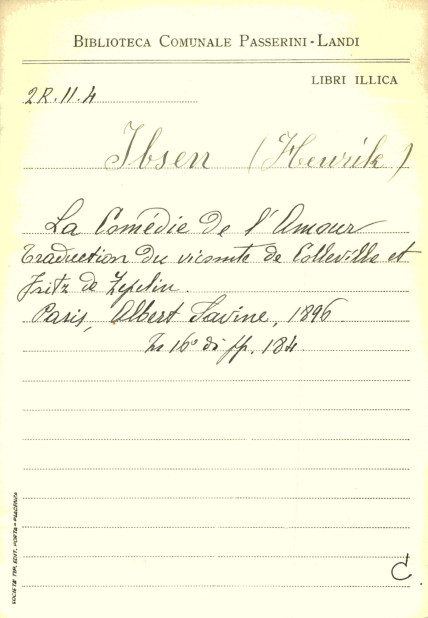 BIBLIOTECA COMUNALE PASSERINI-LANDI
LIBRI ILLICA
2R.11.4
Ibsen (Henrik)
La Comédie de l'Amour
Traduction du vicomte de Colleville et
Fritz de Zepelin.
Paris, Albert Savine, 1896
In 16° di pp. 184
C
SOCIETÀ TIP. EDIT. PORTA - PIACENZA